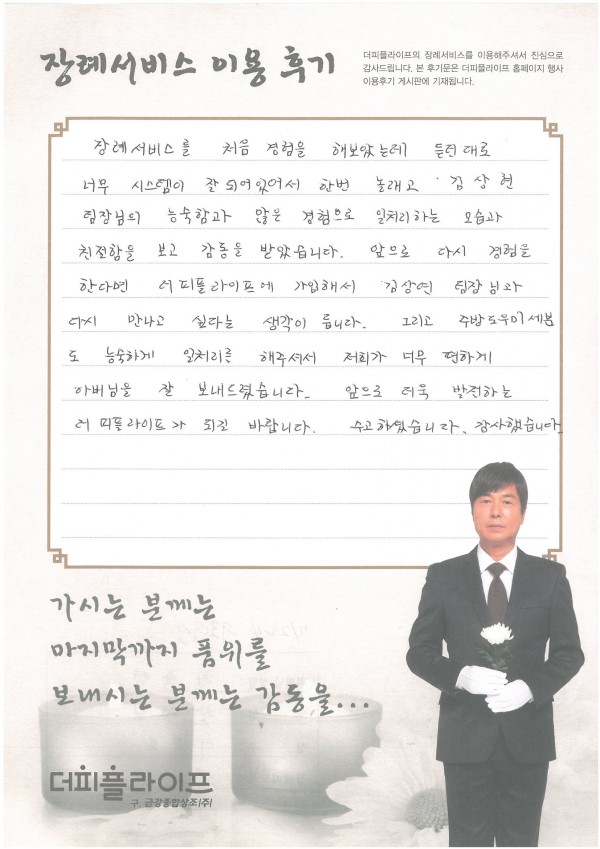 장례서비스 이용 후기
더피플라이프의 장례서비스를 이용해주셔서 진심으로
감사드립니다. 본 후기문은 더피플라이프 홈페이지 행사
이용후기 게시판에 기재됩니다.
장례서비스를 처음 경험을 해보았는데 듣던대로
너무 시스템이 잘 되어있어서 한번 놀래고 김상현
팀장님의 능숙함과 많은 경험으로 일처리하는 모습과
친절함을 보고 감동을 받았습니다. 앞으로 다시 경험을
한다면 더피플라이프에 가입해서 김상연 팀장님과
다시 만나고 싶다는 생각이 듭니다. 그리고 주방도우미세분
도 능숙하게 일처리를 해주셔서 저희가 너무 편하게
아버님을 잘 보내드렸습니다. 앞으로 더욱 발전하는
더 피플라이프가 되길 바랍니다. 수고하셨습니다. 감사했습니다.
가시는 분께는
마지막까지 품위를
보내시는 분께는 감동을...
더피플라이프
구. 금강종합상조(주)